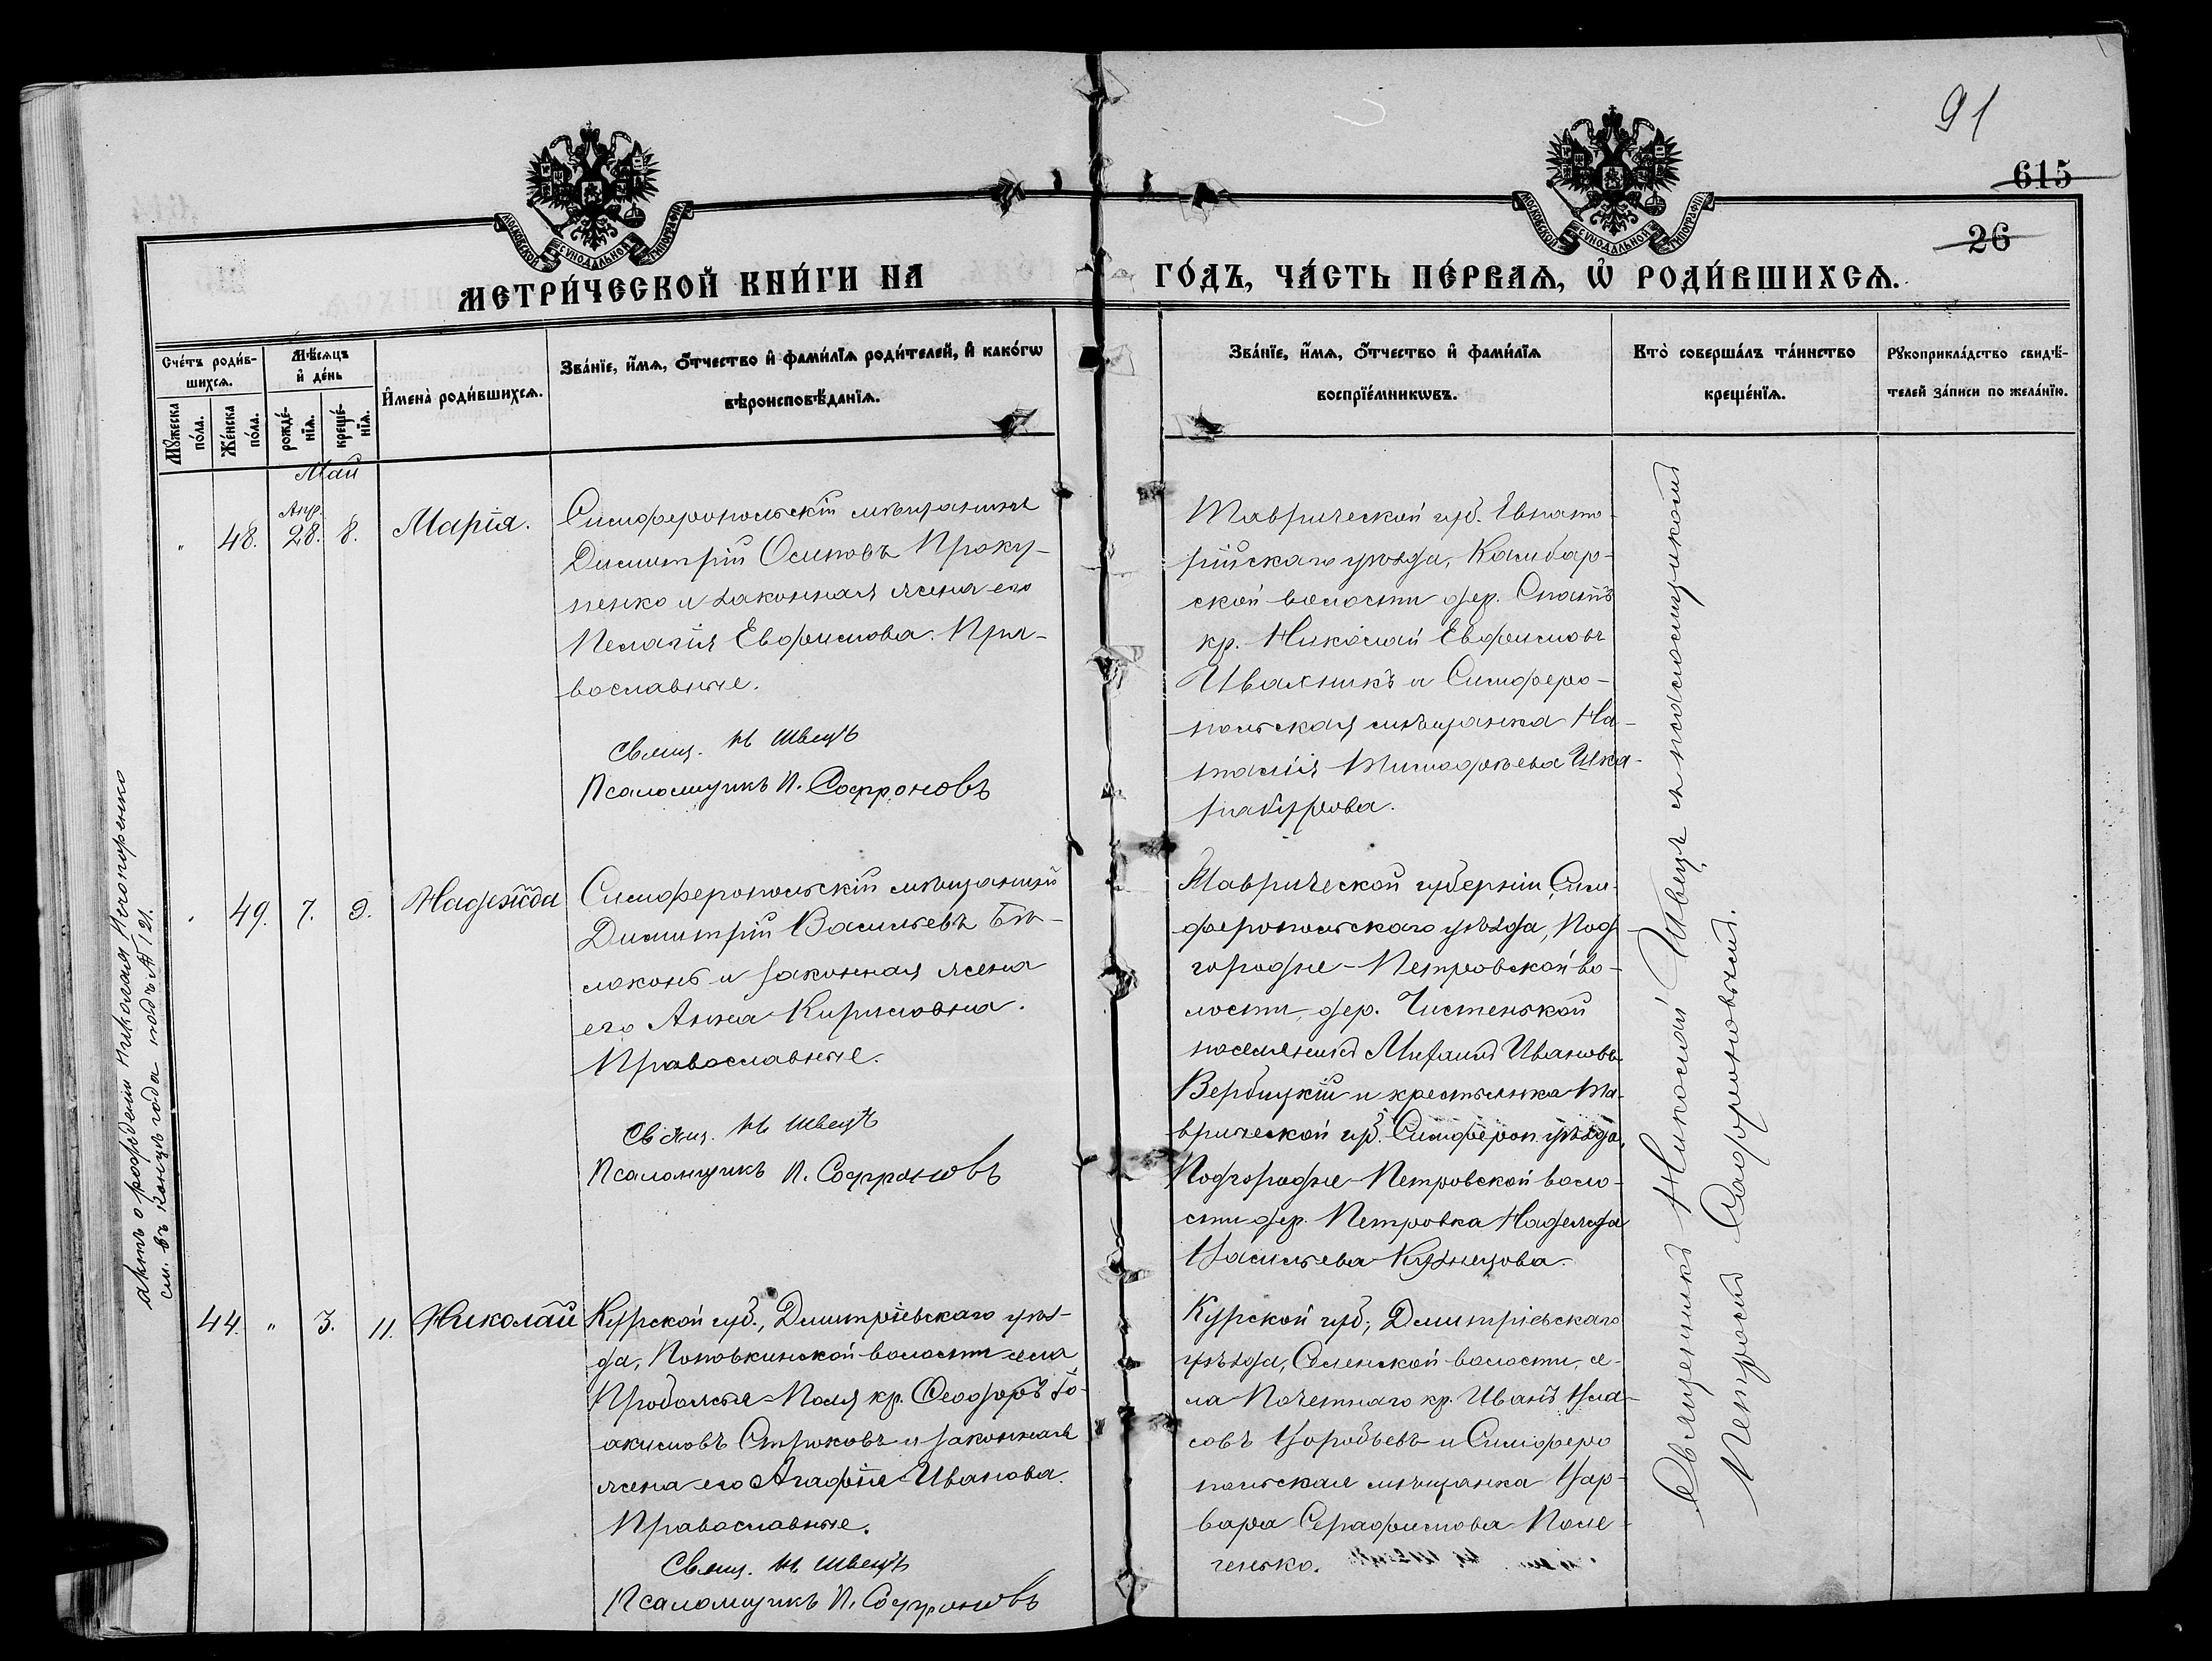 91
615
26
МОСКОВСКОЙ СѴНОДАЛЬНОЙ ТИПОГРАФІИ
МОСКОВСКОЙ СѴНОДАЛЬНОЙ ТИПОГРАФІИ
МЕТРИ́ЧЕСКОЙ КНИ́ГИ НА ГО́ДЪ, ЧА́СТЬ ПЕ́РВАѦ, Ѡ҆ РОДИ́ВШИХСѦ.
Сче́тъ роди́в-
шихсѧ.
Мꙋ́жеска
по́ла.
Же́нска
по́ла.
Мѣ́сѧцъ
и҆ де́нь
рожде́-
нїѧ.
креще́-
нїѧ.
И҆мена̀ роди́вшихсѧ.
Зва́нїе, и҆́мѧ, ѻ҆́тчество и҆ фами́лїѧ роди́телей, и҆ како́гѡ
вѣроисповѣ́данїѧ.
Зва́нїе, и҆́мѧ, ѻ҆́тчество и҆ фами́лїѧ
воспрїе́мникѡвъ.
Кто̀ соверша́лъ та́инство
креще́нїѧ.
Рꙋкоприкла́дство свидѣ́-
телей за́писи по жела́нїю.
Май
" 48. Апр. 28. 8. Марія.
Симферопольскій мѣщанинъ
Димитрій Осиповъ Проку-
пенко и законная жена его
Пелагія Евфимова. Пра-
вославные.
Свящ. Н Швецъ
Псаломщикъ П. Софроновъ
Таврической губ. Евпато-
рійскаго уѣзда, Камбар-
ской волости дер. Спатъ
кр. Николай Евфимовъ
Ивахникъ и Симферо-
польская мѣщанка На-
талія Тимофѣева Шка-
" 49. 7. 9. Надежда
Симферопольскій мѣщанинъ
Димитрій Васильевъ Бѣ-
локонь и законная жена
его Анна Кириловна.
Православные.
Свящ. Н Швецъ
Псаломщикъ П. Софроновъ
Таврической губерніи, Сим-
феропольскаго уѣзда, Под-
городне-Петровской во-
лости, дер. Чистенькой
поселянинъ Михаилъ Ивановъ
Вербицкій и крестьянка Та-
врической губ. Симфероп. уѣзда,
Подгородне-Петровской воло-
сти дер. Петровка Надежда
Васильева Кузнецова.
44. " 3. 11. Николай
Курской губ., Димитріевскаго уѣз-
да, Поповкинской волости села
Поля кр. Феодоръ Іо-
акимовъ Стрюковъ и законная
жена его Агафія Иванова.
Православные.
Свящ. Н Швецъ
Псаломщикъ П. Софроновъ
Курской губ., Димитріевскаго
уѣзда, волости, се-
ла Почетнаго кр. Иванъ Вла-
совъ Воробьевъ и Симферо
польская мѣщанка Вар-
вара Серафимова Поле-
ченько.
Священникъ Николай Швецъ съ псаломщикомъ
Петромъ Софроновымъ.
актъ о рожденіи Николая
см. въ концѣ года подъ № 121.